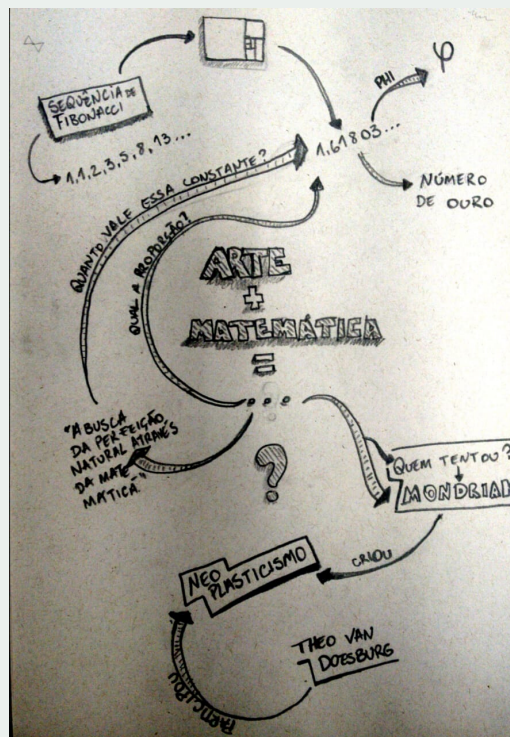 SEQUÊNCIA DE
FIBONACCI
1,1,2,3,5,8,13...
1,61803...
PHI
φ
NÚMERO
DE OURO
QUANTO VALE ESSA CONSTANTE?
QUAL A PROPORÇÃO?
ARTE
+
MATEMÁTICA
=
...
?
"A BUSCA
DA PERFEIÇÃO
NATURAL ATRAVÉS
DA MATE
MÁTICA."
QUEM TENTOU?
MONDRIAN
CRIOU
NEO
PLASTICISMO
THEO VAN
DOESBURG
PARTICIPOU